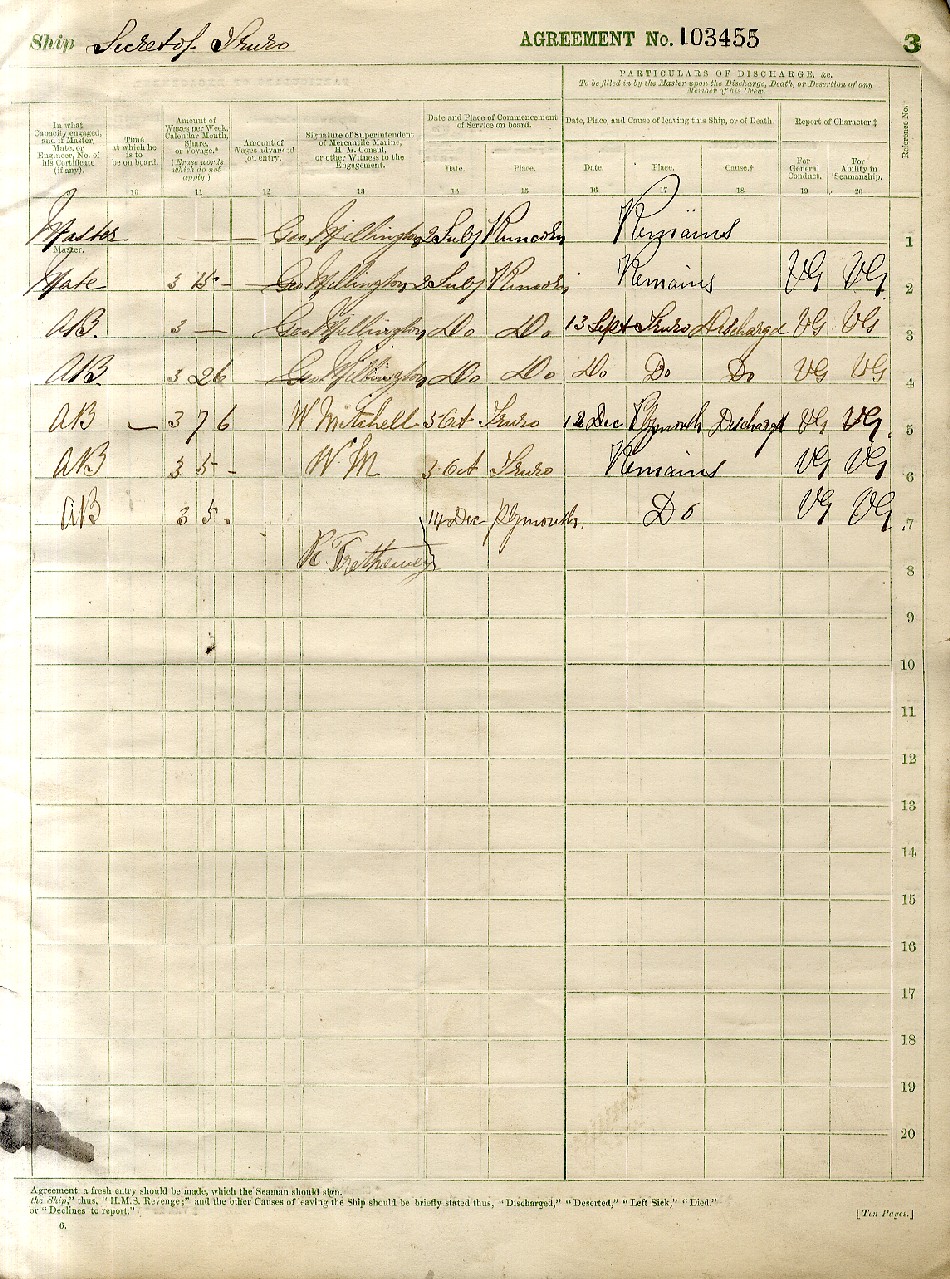 Ship Secret of Truro AGREEMENT No. 103455 3
PARTICULARS OF DISCHARGE, &c.
To be filled in by the Master upon the Discharge, Death, or Desertion of any
Member of his Crew.
In what
Capacity engaged,
and if Master,
Mate, or
Engineer, No. of
his Certificate
(if any).
10
Time
at which he
is to
be on board.
Amount of
Wages per Week,
Calendar Month,
Share,
or Voyage.*
11
Amount of
Wages advanced
on entry.
12
Signature of Superintendent
of Mercantile Marine,
H. M. Consul,
or other Witness to the
Engagement.
13
Date and Place of Commencement
of Service on board.
Date.
14
Place.
15
Date, Place, and Cause of leaving this Ship, or of Death
Date
16
Place.
17
Cause.†
18
Report of Character.‡
For
General
Conduct.
19
For
Ability in
Seamanship.
20
Reference No.
Master — Geo Millington 2 July Runcorn Remains 1
Master.
Mate 3 15 – Geo Millington 2 July Runcorn Remains VG VG 2
AB. 3 — Geo Millington Do Do 13 Sept Truro Discharged VG VG 3
AB 3 2 6 Geo Millington Do Do Do Do Do VG VG 4
AB 3 7 6 W Mitchell 3 Oct Truro 12 Dec Plymouth Discharged VG VG 5
AB 3 5 – W M 3 Oct Truro Remains VG VG 6
AB 3 5 - 14 Dec Plymouth Do VG VG 7
R Trethewey 8
9
10
11
12
13
14
15
16
17
18
19
20
Agreement a fresh entry should be made, which the Seaman should sign.
the Ship," thus, "H.M.S. Revenge;" and the other Causes of leaving the Ship should be briefly stated thus, "Discharged," "Deserted," "Left Sick," "Died."
or "Declines to report."
6.
[Ten Pages.]